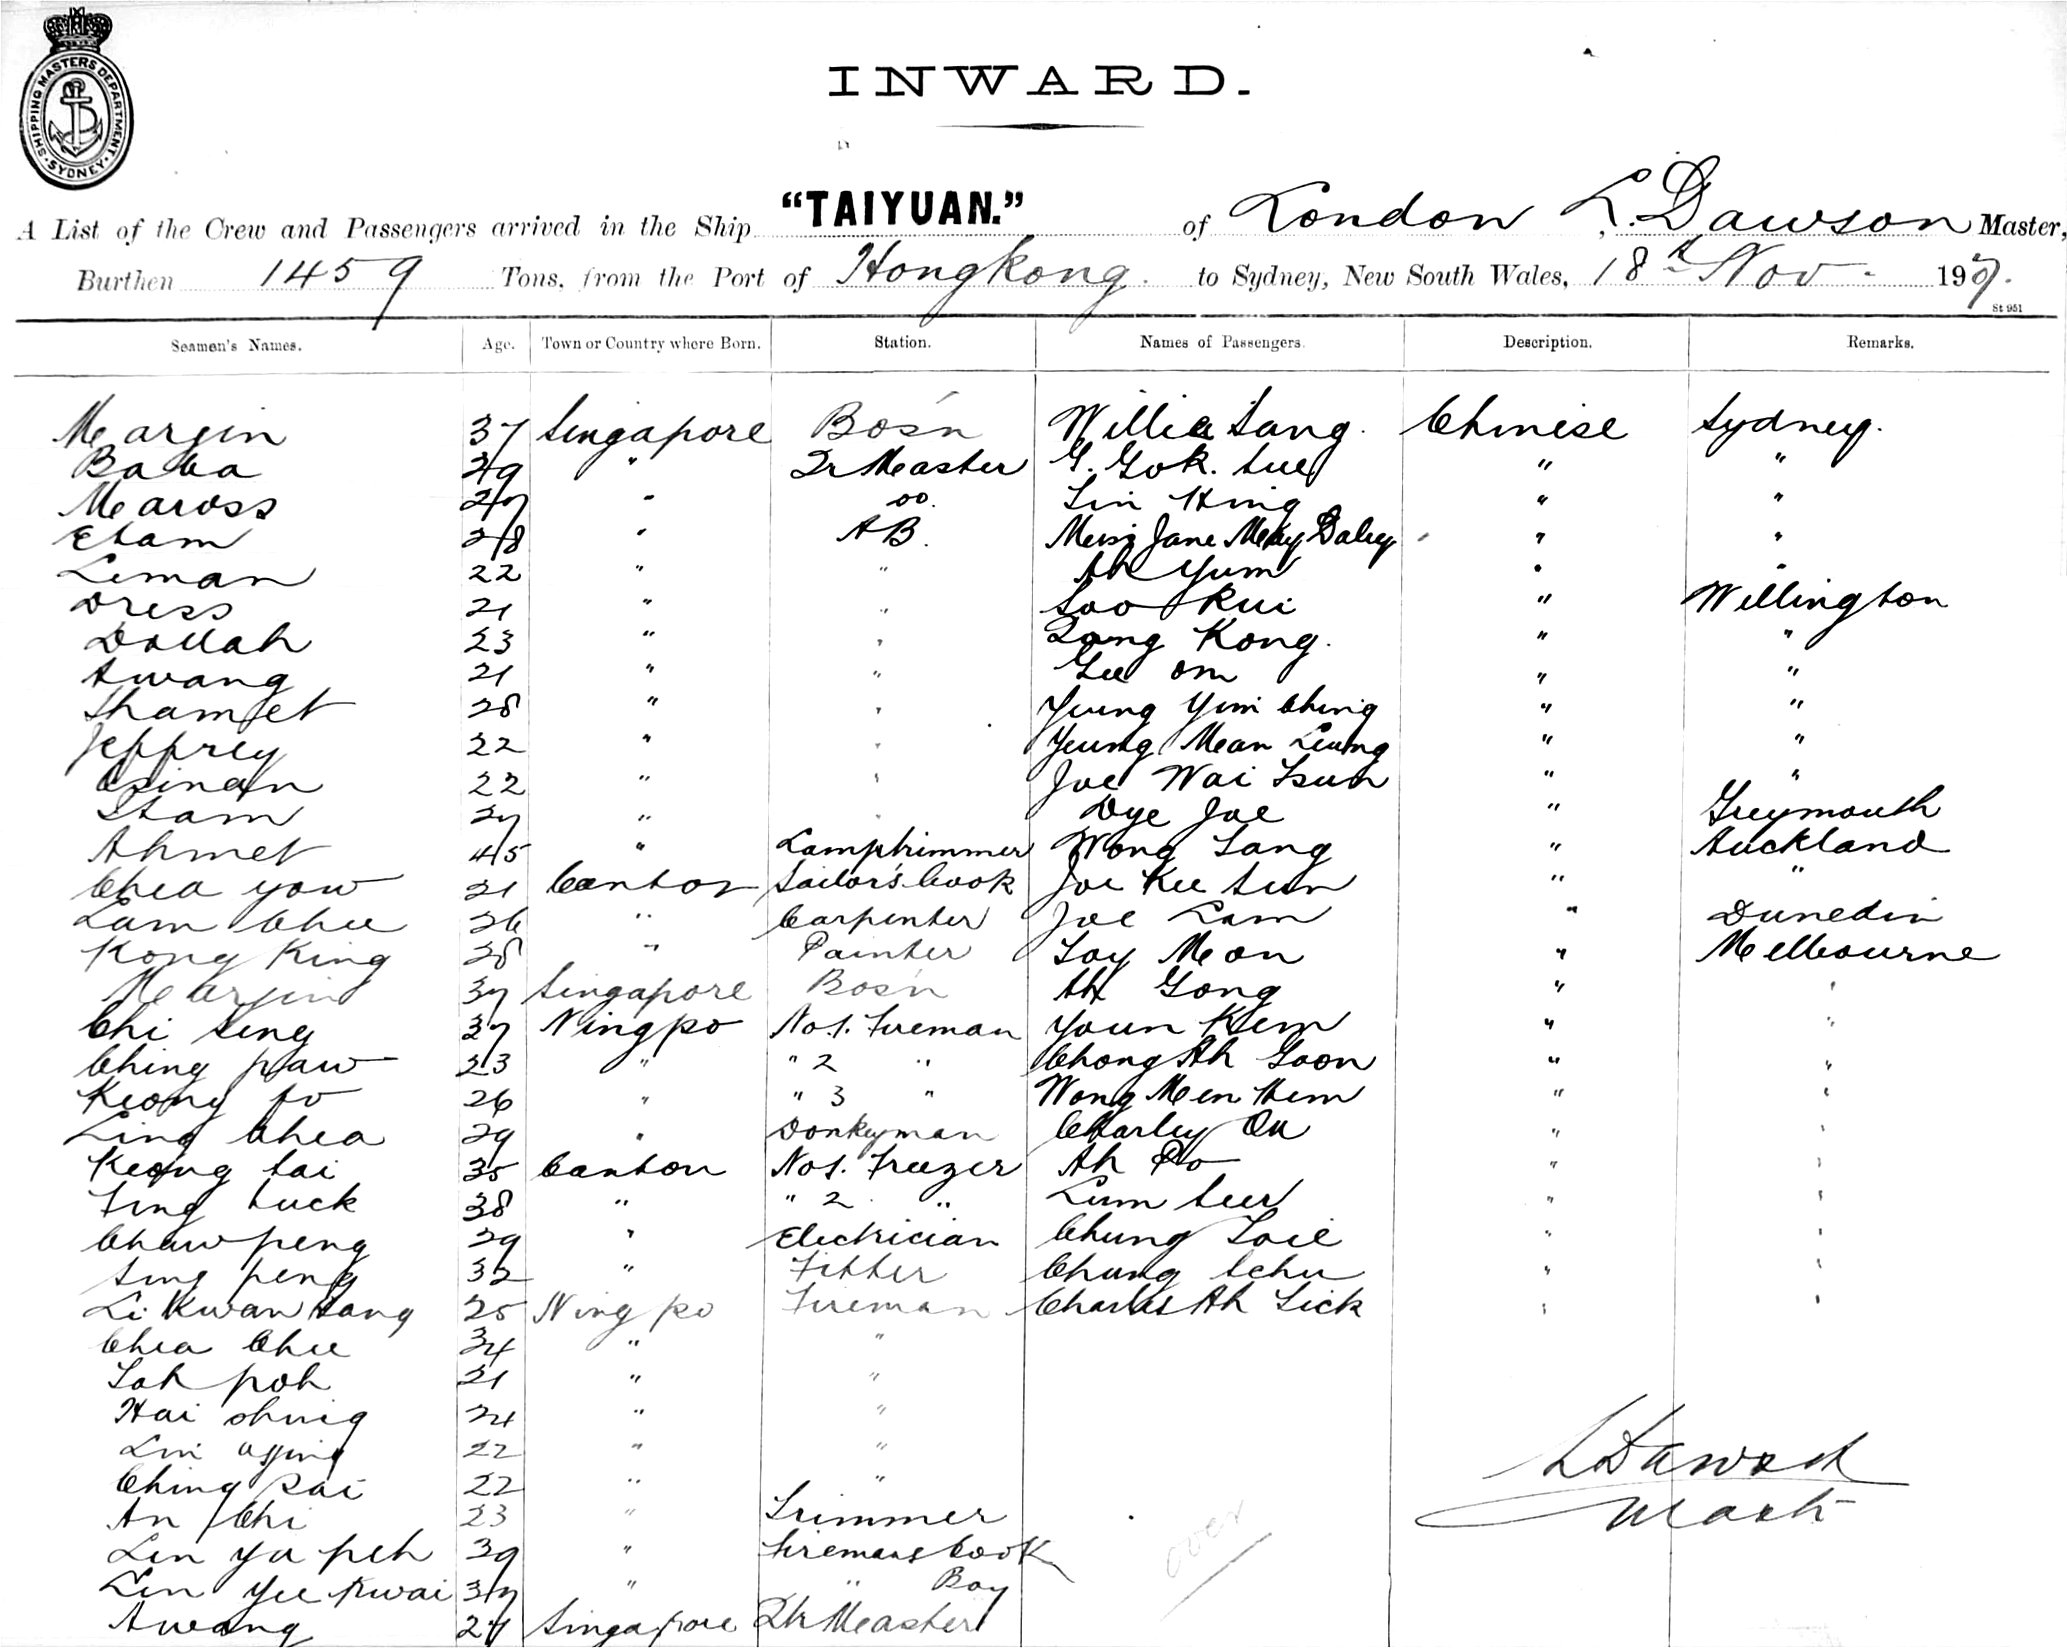 SHIPPING MASTERS DEPARTMENT
SYDNEY
INWARD.
A List of the Crew and Passengers arrived in the Ship "TAIYUAN." of London L. Dawson Master,
Burthen 1459 Tons, from the Port of Hongkong. to Sydney, New South Wales, 18th Nov. 1907.
St 951
Seamen's Names. Age. Town or Country where Born. Station. Names of Passengers. Description. Remarks.
Marjin 37 Singapore Bos'n Willie Sang. Chinese Sydney.
Baba 29 " Qr Master G. Gok. Sue " "
Maross 27 " do. Sin Hing " "
Etam 28 " AB. Jane Mary Daley " "
Leman 22 " " Ah Yum " "
Dress 21 " " Soo Kui " Wellington
Dollah 23 " " Kong. " "
Awang 21 " " Gee Om " "
Shamet 28 " " Yeung Yim Ching " "
Jeffrey 22 " " Yeung Man Leung " "
22 " " Joe Wai Tsun " "
Etam 27 " " Dye Joe " Greymouth
Ahmet 45 " Lamptrimmer Wong Sang " Auckland
Chea yow 21 Canton Sailor's Cook Joe Kee Sun " "
Lam Chee 26 " Carpenter Joe Lam " Dunedin
Kong King 28 " Painter Loy Mon " Melbourne
Marjin 37 Singapore Bos'n Ah Gong " "
Chi Seng 37 Ningpo No 1. Fireman Youn Kem " "
Ching paw 23 " " 2 " Chong Ah Goon " "
Keong fo 26 " " 3 " Wong Men Hem " "
Ling Chea 29 " Donkeyman Charley On " "
Keong tai 35 Canton No 1. Freezer Ah Po " "
Ting Luck 38 " " 2 " Lum Suey " "
Chaw peng 29 " Electrician Chung Soie " "
Sing peng 32 " Fitter Chung Schu " "
Li Kwan tang 25 Ningpo Fireman Charles Ah Sick " "
Chea Chee 34 " "
Soh poh 21 " "
Hai shing 24 " "
Lin 22 " "
Ching Sai 22 " "
An Chi 23 " Trimmer
Len ya peh 39 " Firemans Cook
Len yee kwai 37 " " Boy
Awang 27 Singapore Qtr Master
L Dawson
Master
over